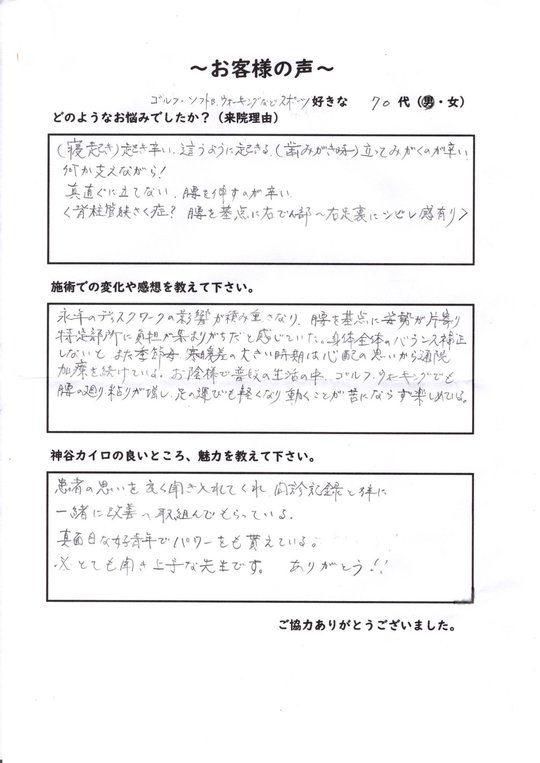 ～お客様の声～
ゴルフ・ソフトB.ウォーキングなどスポーツ好きな 70代（男・女）
どのようなお悩みでしたか？（来院理由）
(寝起き)起き辛い.這うように起きる.(歯みがき時)立ってみがくのが辛い
何か支えながら!
真直ぐに立てない.腰を伸すのが辛い
〈脊柱管狭さく症? 腰を基点に右でん部～右足裏にシビレ感有り〉
施術での変化や感想を教えて下さい。
永年のディスクワークの影響が積み重さなり.腰を基点に姿勢が片寄り
特定部所に負担が集まりがちだと感じていた。身体全体のバランス補正
しないと また季節毎 寒暖差の大きい時期は心配の思いから通院
加療を続けている。お陰様で普段の生活の中.ゴルフ.ウォーキングでも
腰の廻り粘りが増し.足の運びも軽くなり動くことが苦にならず楽しめている。
神谷カイロの良いところ、魅力を教えて下さい。
患者の思いを良く聞き入れてくれ 問診記録と伴に
一緒に改善へ取組んでもらっている.
真面目な好青年でパワーをも貰えている。
※とても聞き上手な先生です。 ありがとう!!
ご協力ありがとうございました。